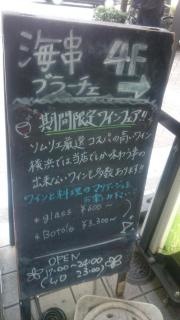 海串 4F
ブラーチェ →
期間限定ワインフェア!!
ソムリエ厳選 コスパの高いワイン
横浜では当店でしか味わう事の
出来ないワインも多数あります!!
ワインと料理のマリアージュを
お楽しみ下さい…
* glass ¥600〜
* Botole ¥3,300〜
OPEN
17:00〜24:00
(L.O 23:00)